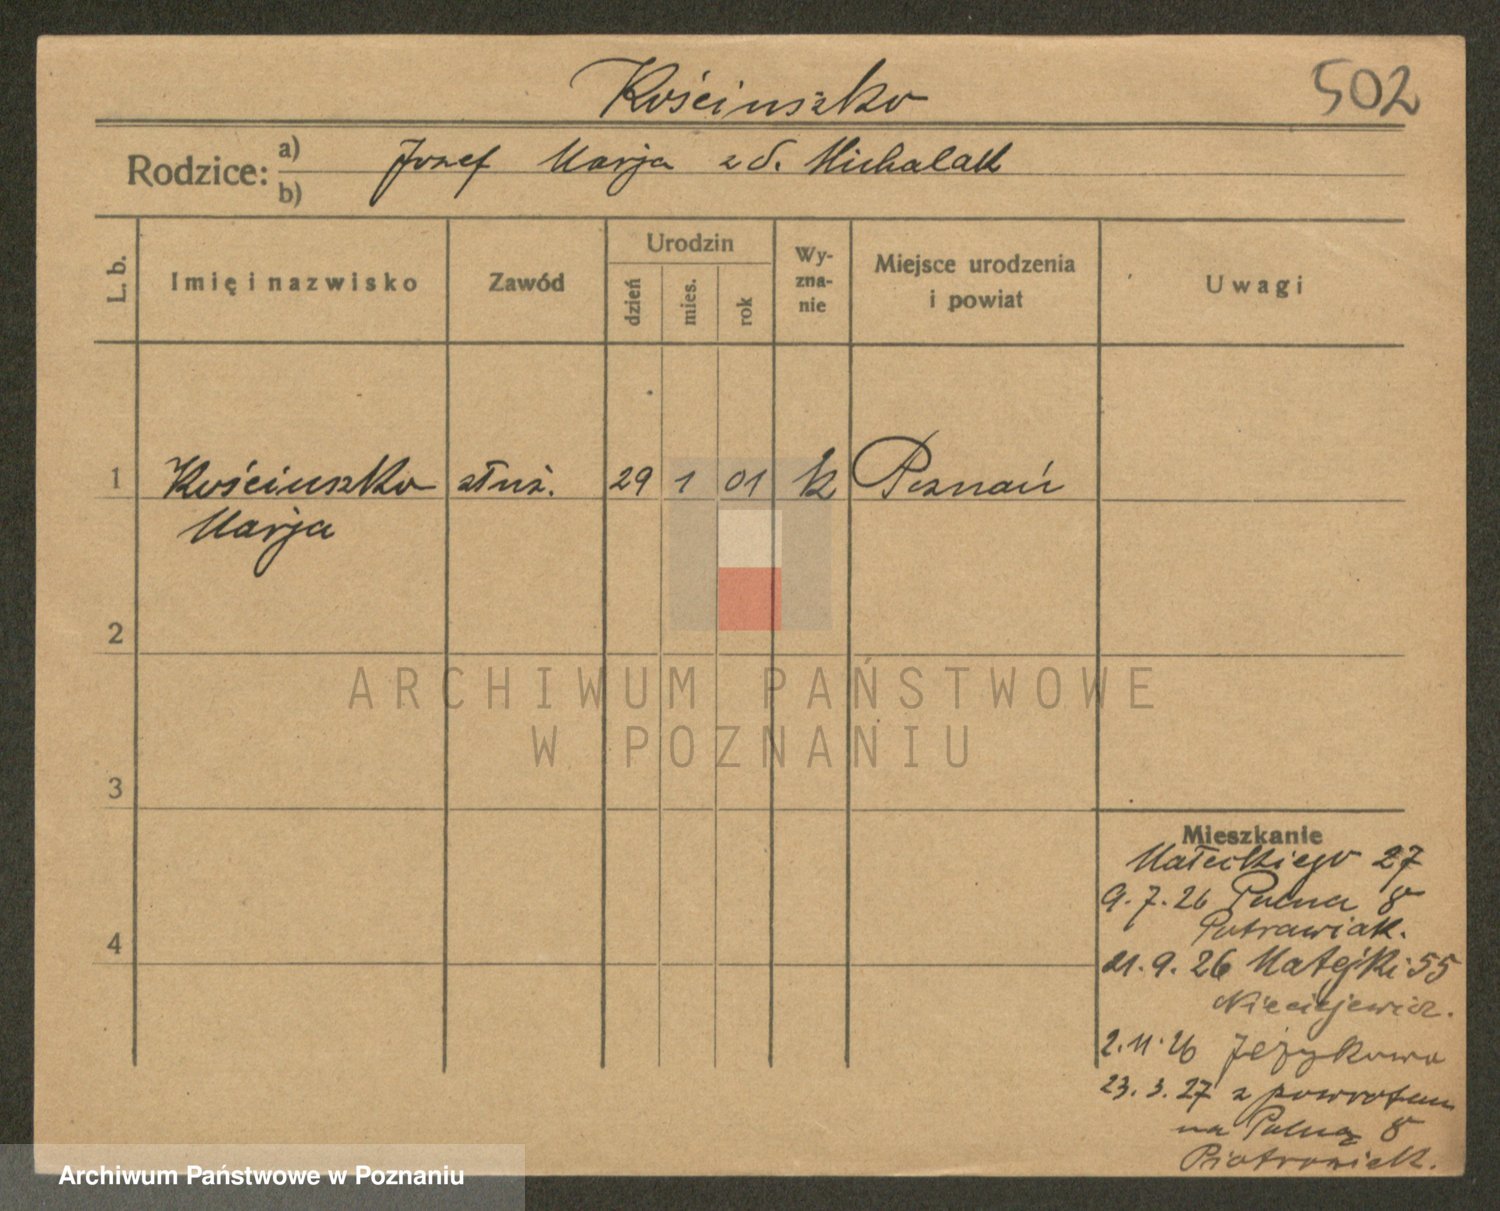 Kościuszko
502
Rodzice: a) b)
Józef Marja z d. Michalak
L. b.
Imię i nazwisko
Zawód
Urodzin
dzień
mies.
rok
Wy-
zna-
nie
Miejsce urodzenia
i powiat
Uwagi
1 Kościuszko służ. 29 1 01 k Poznań
Marja
2
3
4
Mieszkanie
Małeckiego 27
9.7.26 Polna 8
21.9.26 Matejki 55
2.11.26 Jeżykowo
23.3.27 z powrotem
na Polną 8
Piotrowiak.
ARCHIWUM PAŃSTWOWE
W POZNANIU
Archiwum Państwowe w Poznaniu